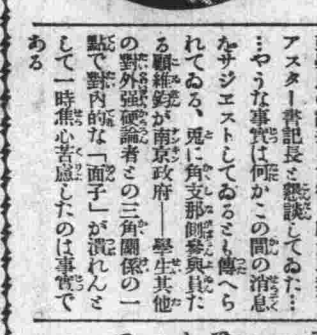 アスター書記長と懇談してゐた…
…やうな事實は何かこの間の消息
をサジエストしてゐるとも傳へら
れてゐる、兎に角支那側參與員た
る顧維鈞が南京政府――學生其他
の對外强硬論者との三角關係の一
點で對內的な「面子」が潰れんと
して一時焦心苦慮したのは事實で
ある